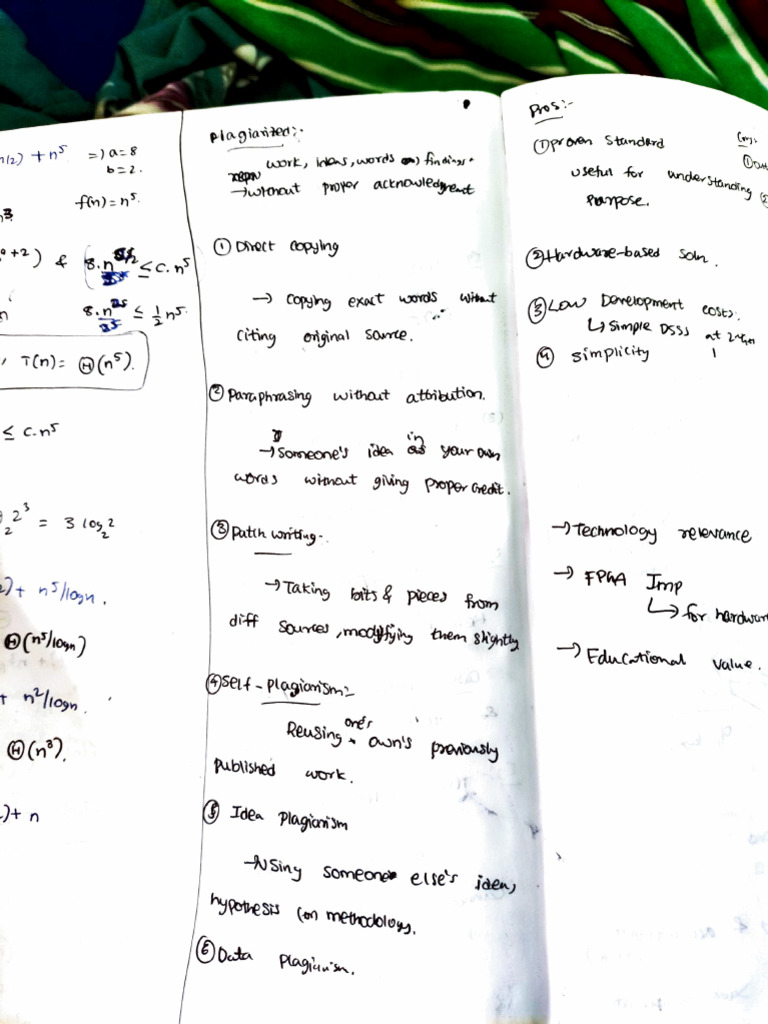 n/2) + n⁵ =) a=8
b=2.
f(n)=n⁵.
n³
+2) & 8.n⁵ ≤ c.n⁵
8.n²⁵ ≤ 1/2 n⁵.
T(n) = Θ(n⁵).
≤ c.n⁵
2³ = 3 log₂2
) + n⁵/logn.
Θ(n⁵/logn)
+ n²/logn.
Θ(n³).
) + n
Plagiarized:-
work, ideas, words (or) findings.
→ without proper acknowledgment
① Direct copying
→ copying exact words without
citing original source.
② Paraphrasing without attribution.
→ Someone's idea in your own
words without giving proper credit.
③ Patch writing-
→ Taking bits & pieces from
diff sources, modifying them slightly
④ Self-plagianism:-
Reusing one's own's previously
published work.
⑤ Idea plagianism
→ Using someone else's idea,
hypothesis (or) methodology.
⑥ Data plagianism.
Pros:-
① Proven Standard
useful for understanding
purpose.
② Hardware-based soln.
③ Low Development costs.
↳ Simple DSSS at
④ Simplicity
→ Technology relevance
→ FPGA Imp
↳ for hardwar
→ Educational value.
Cons:
①
②